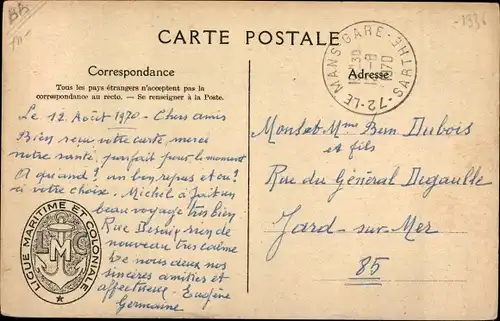 BB
1936
CARTE POSTALE
Correspondance
Tous les pays étrangers n'acceptent pas la
correspondance au recto. — Se renseigner à la Poste.
Adresse
72-LE MANS-GARE-SARTHE
1970
Le 12 Août 1970 - Chers amis
Bien reçu votre carte, merci
votre santé, parfait pour le moment
A quand? un bon repas et ou?
à votre choix. Michel a fait un
beau voyage très bien
Rue Desaix rien de
nouveau très calme
De nous deux nos
sincères amitiés et
affectueuse. Eugène
Germaine
LIGUE MARITIME ET COLONIALE
LMC
Mons et Mme Bun Dubois
et fils
Rue du Général Degaulle
Jard-sur-Mer
85